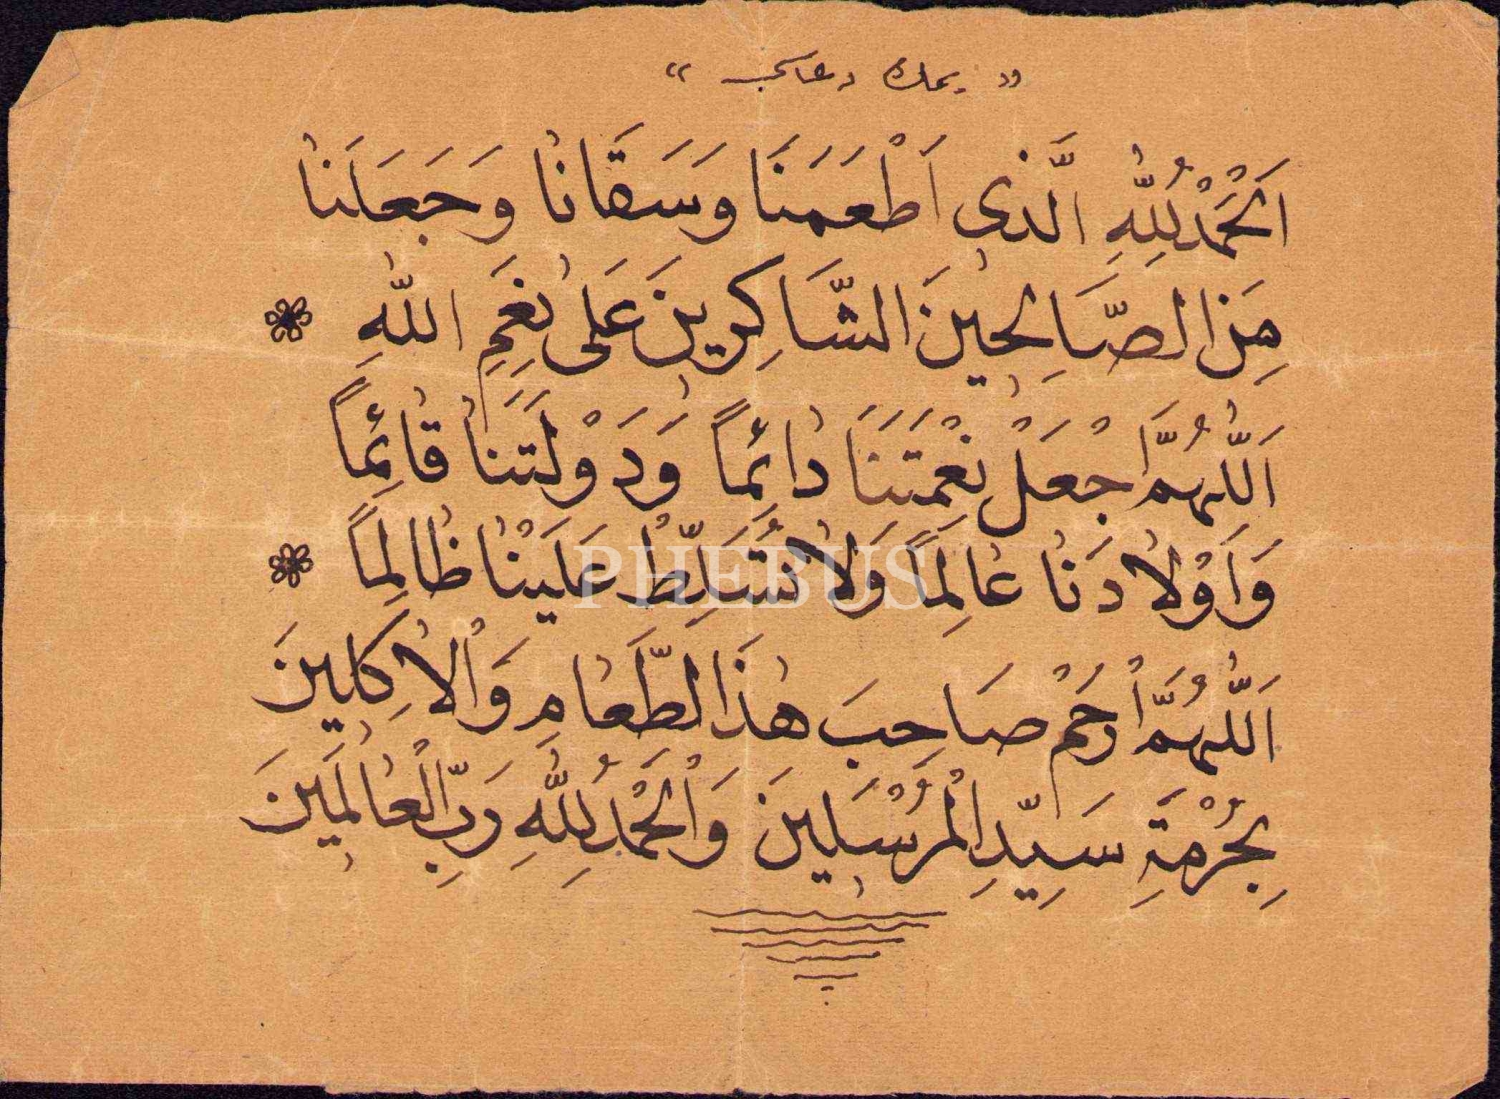 « يمك دعاسى »
اَلْحَمْدُ لِلّٰهِ الَّذٖى اَطْعَمَنَا وَسَقَانَا وَجَعَلَنَا
مِنَ الصَّالِحٖينَ الشَّاكِرٖينَ عَلٰى نِعَمِ اللّٰهِ
اَللّٰهُمَّ اجْعَلْ نِعْمَتَنَا دَائِماً وَدَوْلَتَنَا قَائِماً
وَاَوْلَادَنَا عَالِماً وَلَا تُسَلِّطْ عَلَيْنَا ظَالِماً
PHEBUS
اَللّٰهُمَّ ارْحَمْ صَاحِبَ هٰذَا الطَّعَامِ وَالْاٰكِلٖينَ
بِحُرْمَةِ سَيِّدِ الْمُرْسَلٖينَ وَالْحَمْدُ لِلّٰهِ رَبِّ الْعَالَمٖينَ